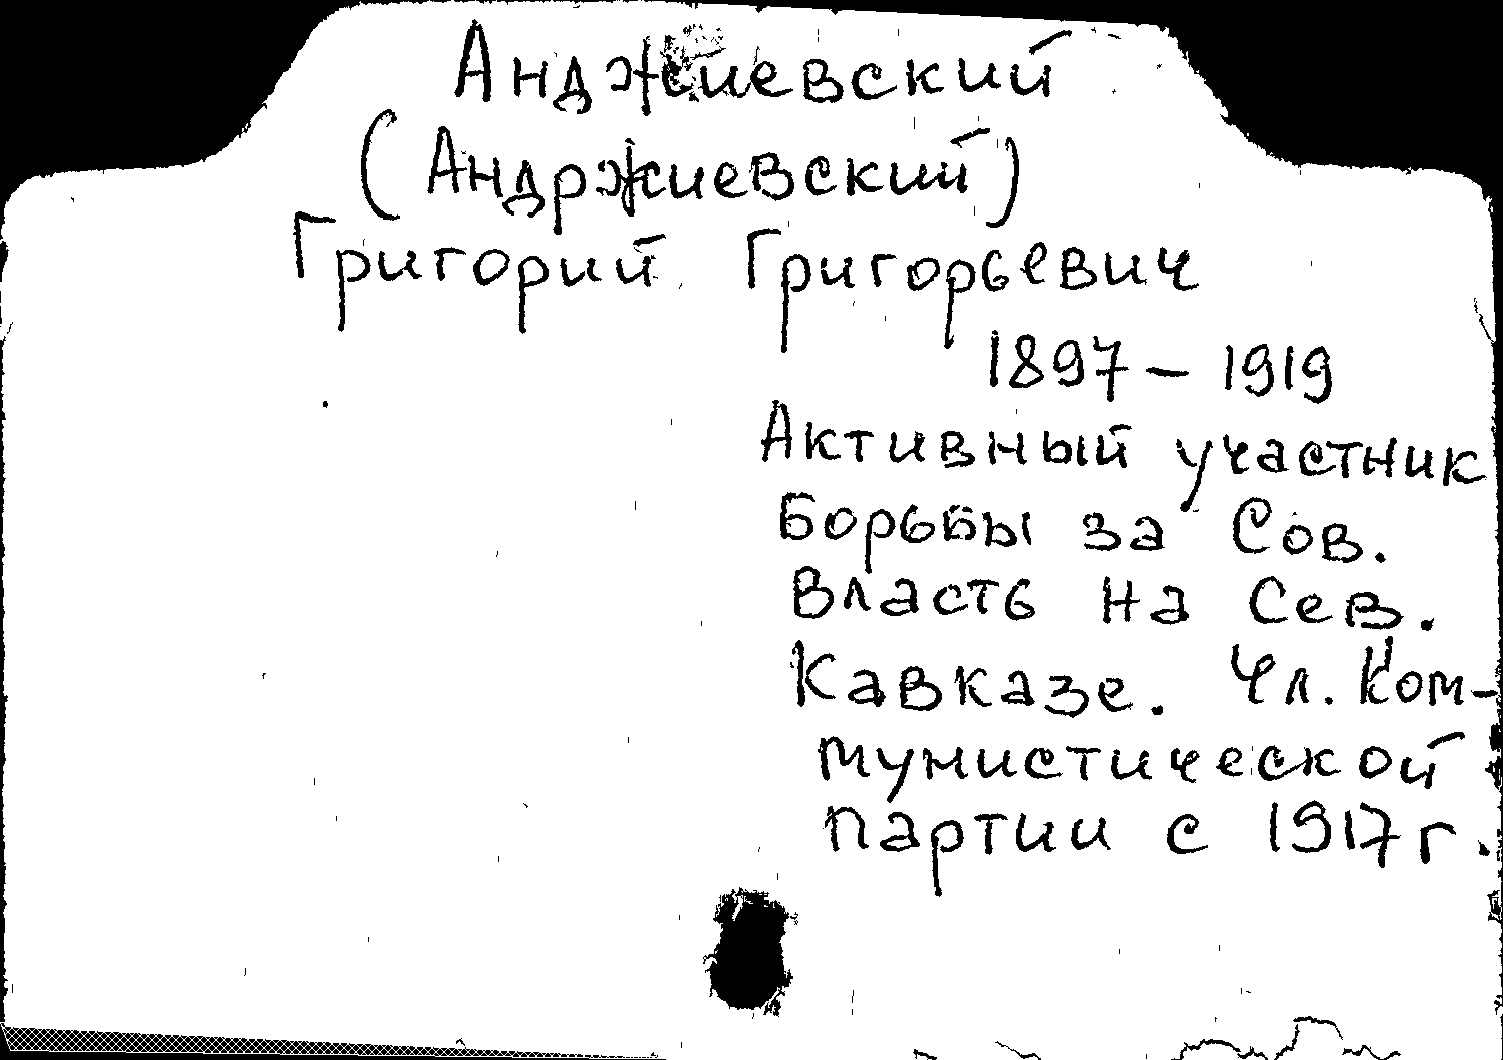 Анджиевский
(Андржиевский)
Григорий Григорьевич
1897 – 1919
Активный участник
борьбы за Сов.
власть на Сев.
Кавказе. Чл. Ком-
мунистической
партии с 1917 г.